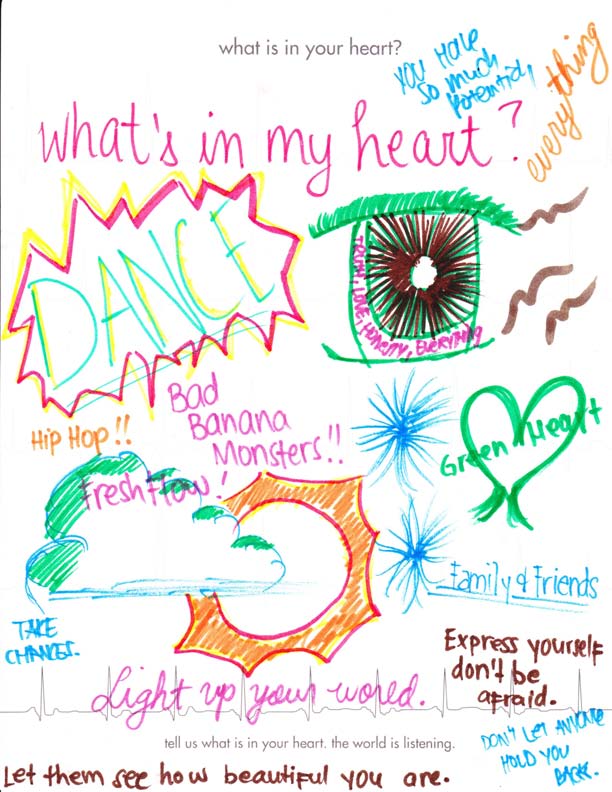 what is in your heart?
You Have
so much
potential,
everything
What's in my heart?
DANCE
TRUTH, LOVE, HONESTY, EVERYTHING
Hip Hop!!
Bad
Banana
Monsters!!
Green Heart
Fresh Flow!
Family & Friends
TAKE
CHANCES.
Express yourself
don't be
afraid.
Light up your world.
tell us what is in your heart. the world is listening.
DON'T LET ANYONE
HOLD YOU
BACK.
Let them see how beautiful you are.